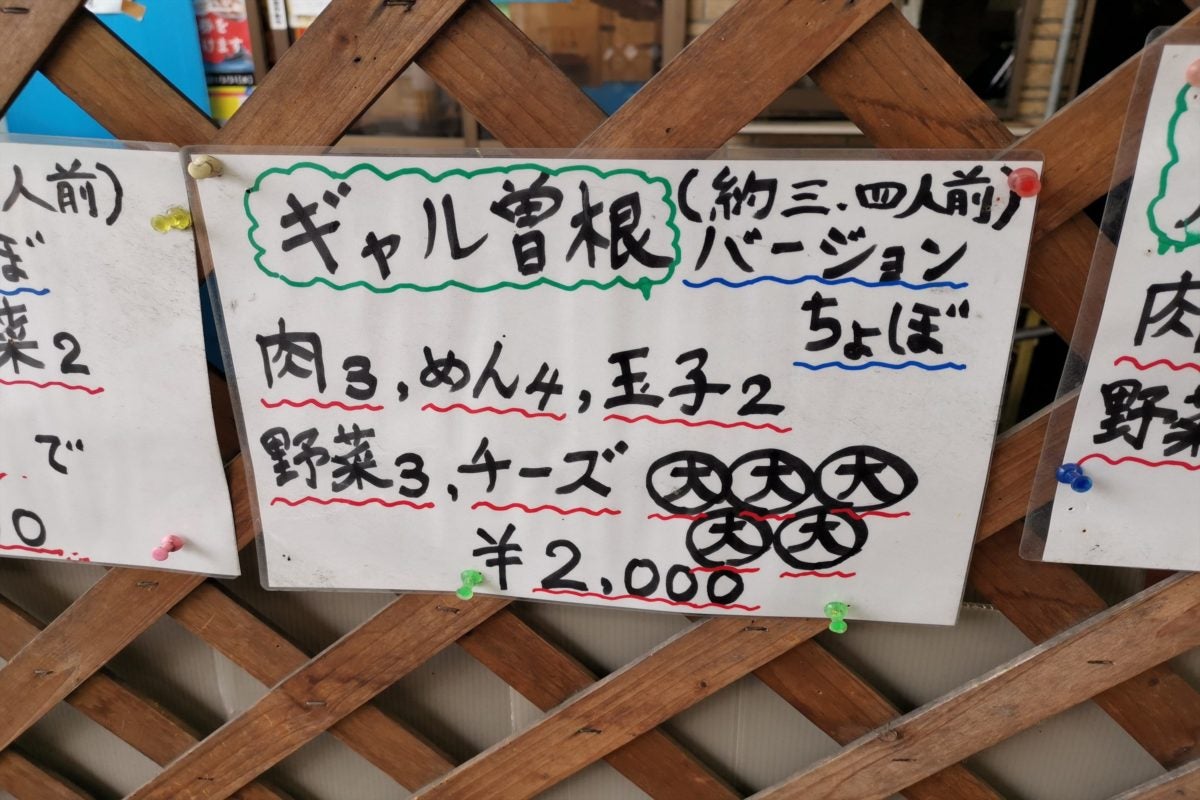 人前)
ぼ
菜2
で
0
ギャル曽根(約三、四人前)
バージョン
ちょぼ
肉3,めん4,玉子2
野菜3,チーズ 大大大
大大
¥2,000
肉
野菜